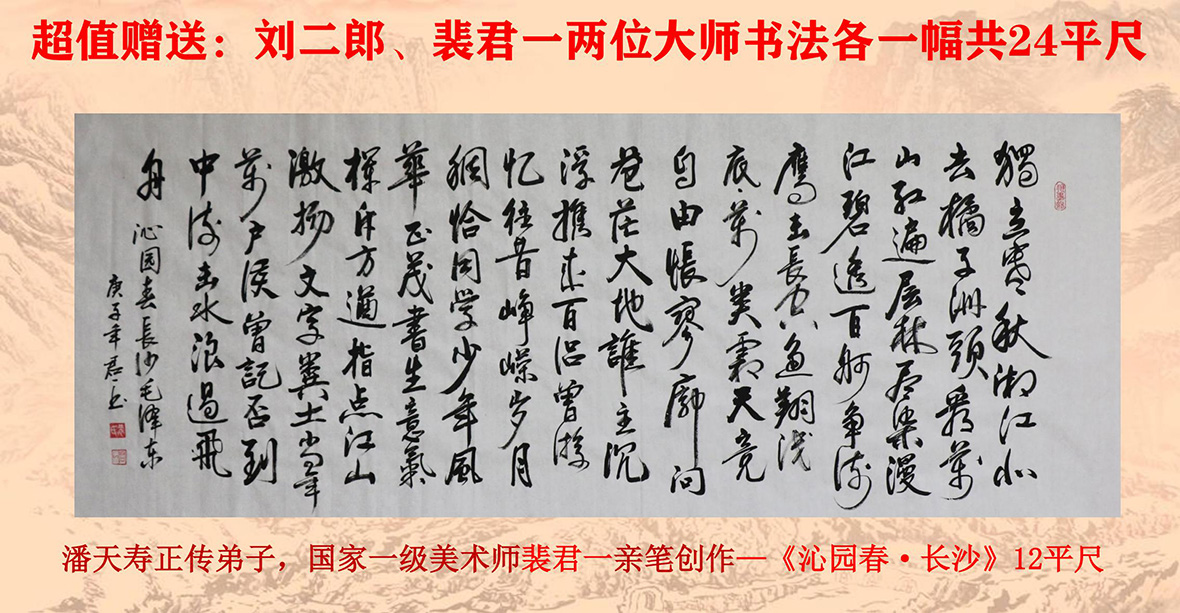 超值赠送：刘二郎、裴君一两位大师书法各一幅共24平尺
獨立寒秋湘江北
去橘子洲頭看萬
山红遍层林尽染漫
江碧透百舸争流
鹰击長空鱼翔浅
底萬类霜天竞
自由悵寥廓问
苍茫大地誰主沉
浮携来百侣曾游
忆往昔峥嶸岁月
稠恰同学少年風
華正茂書生意氣
揮斥方遒指点江山
激扬文字糞土当年
萬户侯曾記否到
中流击水浪遏飛
舟 沁园春長沙毛泽东
庚子年君一书
潘天寿正传弟子，国家一级美术师裴君一亲笔创作—《沁园春·长沙》12平尺